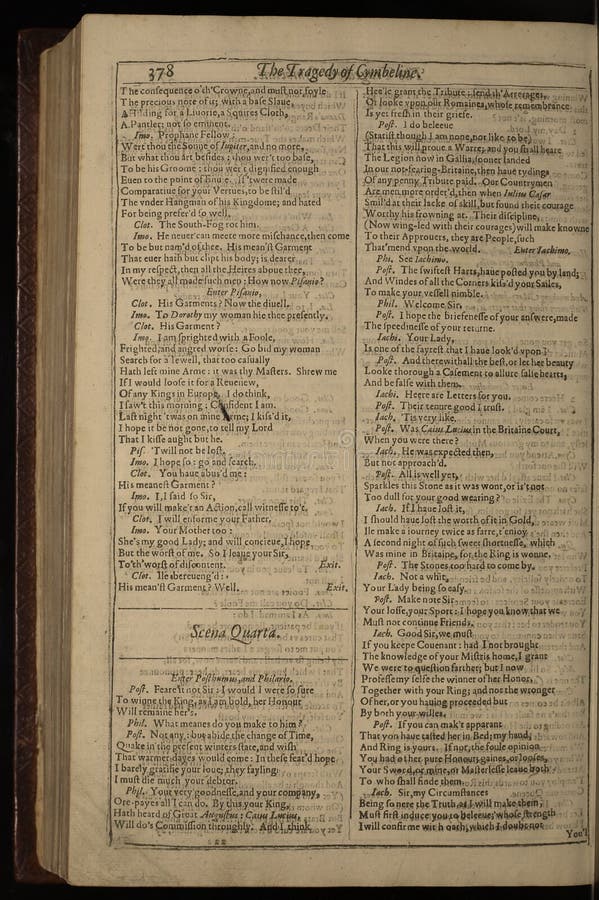 378 The Tragedy of Cymbeline.
The consequence o'th'Crowne, and must not foyle
The precious note of it; with a base Slaue,
A Hilding for a Liuorie, a Squires Cloth,
A Pantler; not so eminent.
Imo. Prophane Fellow:
Wert thou the Sonne of Iupiter, and no more,
But what thou art besides; thou wer't too base,
To be his Groome: thou wer't dignified enough
Euen to the point of Enuie. If 'twere made
Comparatiue for your Vertues, to be stil'd
The vnder Hangman of his Kingdome; and hated
For being prefer'd so well.
Clot. The South-Fog rot him.
Imo. He neuer can meete more mischance, then come
To be but nam'd of thee. His mean'st Garment
That euer hath but clipt his body; is dearer
In my respect, then all the Heires aboue thee,
Were they all made such men: How now Pisanio?
Enter Pisanio,
Clot. His Garments? Now the diuell.
Imo. To Dorothy my woman hie thee presently.
Clot. His Garment?
Imo. I am sprighted with a Foole,
Frighted, and angred worse: Go bid my woman
Search for a Iewell, that too casually
Hath left mine Arme: it was thy Masters. Shrew me
If I would loose it for a Reuenew,
Of any Kings in Europe. I do think,
I saw't this morning: Confident I am.
Last night 'twas on mine me; I kiss'd it,
I hope it be not gone, to tell my Lord
That I kisse aught but he.
Pis. 'Twill not be lost.
Imo. I hope so: go and search.
Clot. You haue abus'd me:
His meanest Garment?
Imo. I, I said so Sir,
If you will make't an Action, call witnesse to't.
Clot. I will enforme your Father,
Imo. Your Mother too:
She's my good Lady; and will concieue, I hope
But the worst of me. So I leaue your Sir,
To'th'worst of discontent. Exit.
Clot. Ile bereueng'd:
His mean'st Garment? Well. Exit.
Scena Quarta.
Enter Posthumus, and Philario.
Post. Feare it not Sir: I would I were so sure
To winne the King, as I am bold, her Honour
Will remaine her's.
Phil. What meanes do you make to him?
Post. Not any: but abide the change of Time,
Quake in the present winters state, and wish
That warmer dayes would come: In these fear'd hope
I barely gratifie your loue; they fayling
I must die much your debtor.
Phil. Your very goodnesse, and your company,
Ore-payes all I can do. By this your King,
Hath heard of Great Augustus: Caius Lucius,
Will do's Commission throughly. And I think
Hee'le grant the Tribute: send th'Arrerages,
Or looke vpon our Romaines, whose remembrance
Is yet fresh in their griefe.
Post. I do beleeue
(Statist though I am none, nor like to be)
That this will proue a Warre; and you shall heare
The Legion now in Gallia, sooner landed
In our not-fearing-Britaine, then haue tydings
Of any penny Tribute paid. Our Countrymen
Are men more order'd, then when Iulius Cæsar
Smil'd at their lacke of skill, but found their courage
Worthy his frowning at. Their discipline,
(Now wing-led with their courages) will make knowne
To their Approuers, they are People, such
That mend vpon the world. Enter Iachimo.
Phi. See Iachimo.
Post. The swiftest Harts, haue posted you by land;
And Windes of all the Corners kiss'd your Sailes,
To make your vessell nimble.
Phil. Welcome Sir.
Post. I hope the briefenesse of your answere, made
The speedinesse of your returne.
Iachi. Your Lady,
Is one of the fayrest that I haue look'd vpon
Post. And therewithall the best, or let her beauty
Looke thorough a Casement to allure false hearts,
And be false with them.
Iachi. Heere are Letters for you.
Post. Their tenure good I trust.
Iach. 'Tis very like.
Post. Was Caius Lucius in the Britaine Court,
When you were there?
Iach. He was expected then,
But not approach'd.
Post. All is well yet,
Sparkles this Stone as it was wont, or is't not
Too dull for your good wearing?
Iach. If I haue lost it,
I should haue lost the worth of it in Gold,
Ile make a iourney twice as farre, t'enioy
A second night of such sweet shortnesse, which
Was mine in Britaine, for the Ring is wonne.
Post. The Stones too hard to come by.
Iach. Not a whit,
Your Lady being so easy.
Post. Make note Sir
Your losse, your Sport: I hope you know that we
Must not continue Friends.
Iach. Good Sir, we must
If you keepe Couenant: had I not brought
The knowledge of your Mistris home, I grant
We were to question farther; but I now
Professe my selfe the winner of her Honor,
Together with your Ring; and not the wronger
Of her, or you hauing proceeded but
By both your willes.
Post. If you can mak't apparant
That you haue tasted her in Bed; my hand,
And Ring is yours. If not, the foule opinion
You had of her pure Honour; gaines, or looses,
Your Sword, or mine, or Masterlesse leaue both
To who shall finde them.
Iach. Sir, my Circumstances
Being so nere the Truth, as I will make them,
Must first induce you to beleeue; whose strength
I will confirme with oath, which I doubt not
You'l